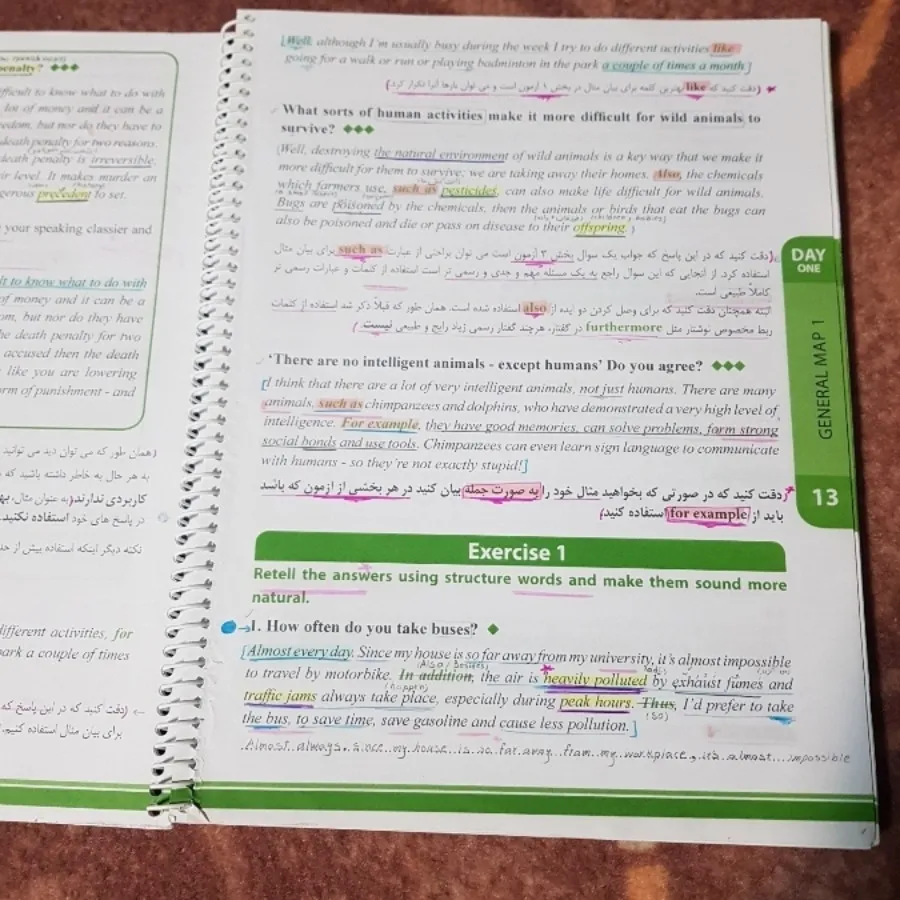 penalty? ◆◆◆
fficult to know what to do with
lot of money and it can be a
edom, but nor do they have to
death penalty for two reasons.
death penalty is irreversible.
ir level. It makes murder an
gerous precedent to set.
your speaking classier and
lt to know what to do with
of money and it can be a
om, but nor do they have
he death penalty for two
accused then the death
like you are lowering
rm of punishment - and
(همان طور که می توان دید می توانید
به هر حال به خاطر داشته باشید که
کاربردی ندارند(به عنوان مثال،
در پاسخ های خود استفاده نکنید.
نکته دیگر اینکه استفاده بیش از حد
ifferent activities, for
park a couple of times
← (دقت کنید که در این پاسخ که
برای بیان مثال استفاده کنیم.
[Well, although I'm usually busy during the week I try to do different activities like
going for a walk or run or playing badminton in the park a couple of times a month.]
(دقت کنید که like بهترین کلمه برای بیان مثال در بخش ۱ آزمون است و می توان بارها آنرا تکرار کرد.)
What sorts of human activities make it more difficult for wild animals to
survive? ◆◆◆
(Well, destroying the natural environment of wild animals is a key way that we make it
more difficult for them to survive; we are taking away their homes. Also, the chemicals
which farmers use, such as pesticides, can also make life difficult for wild animals.
Bugs are poisoned by the chemicals, then the animals or birds that eat the bugs can
also be poisoned and die or pass on disease to their offspring.)
(دقت کنید که در این پاسخ که جواب یک سوال بخش ۳ آزمون است می توان براحتی از عبارت such as برای بیان مثال
استفاده کرد. از آنجایی که این سوال راجع به یک مسئله مهم و جدی و رسمی تر است استفاده از کلمات و عبارات رسمی تر
کاملاً طبیعی است.
البته همچنان دقت کنید که برای وصل کردن دو ایده از also استفاده شده است. همان طور که قبلاً ذکر شد استفاده از کلمات
ربط مخصوص نوشتار مثل furthermore در گفتار، هرچند گفتار رسمی زیاد رایج و طبیعی نیست.)
‘There are no intelligent animals - except humans’ Do you agree? ◆◆◆
[I think that there are a lot of very intelligent animals, not just humans. There are many
animals, such as chimpanzees and dolphins, who have demonstrated a very high level of
intelligence. For example, they have good memories, can solve problems, form strong
social bonds and use tools. Chimpanzees can even learn sign language to communicate
with humans - so they're not exactly stupid!]
(دقت کنید که در صورتی که بخواهید مثال خود را به صورت جمله بیان کنید در هر بخشی از آزمون که باشد
باید از for example استفاده کنید)
DAY
ONE
GENERAL MAP 1
13
Exercise 1
Retell the answers using structure words and make them sound more
natural.
1. How often do you take buses? ◆
[Almost every day. Since my house is so far away from my university, it's almost impossible
(Also/Besides)
to travel by motorbike. In addition, the air is heavily polluted by exhaust fumes and
(happen)
traffic jams always take place, especially during peak hours. Thus, I'd prefer to take
(so)
the bus, to save time, save gasoline and cause less pollution.]
Almost always. since my house is so far away from my workplace, it's almost impossible